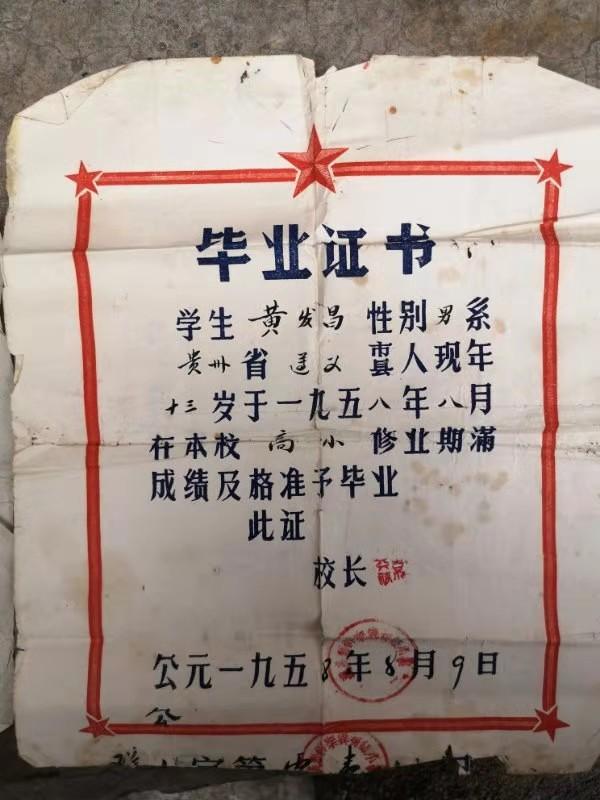 毕业证书
学生 黄发昌 性别男系
贵州省遵义市县人现年
十三岁于一九五八年八月
在本校高小修业期满
成绩及格准予毕业
此证
校长
公元一九五8年8月9日
公
字第